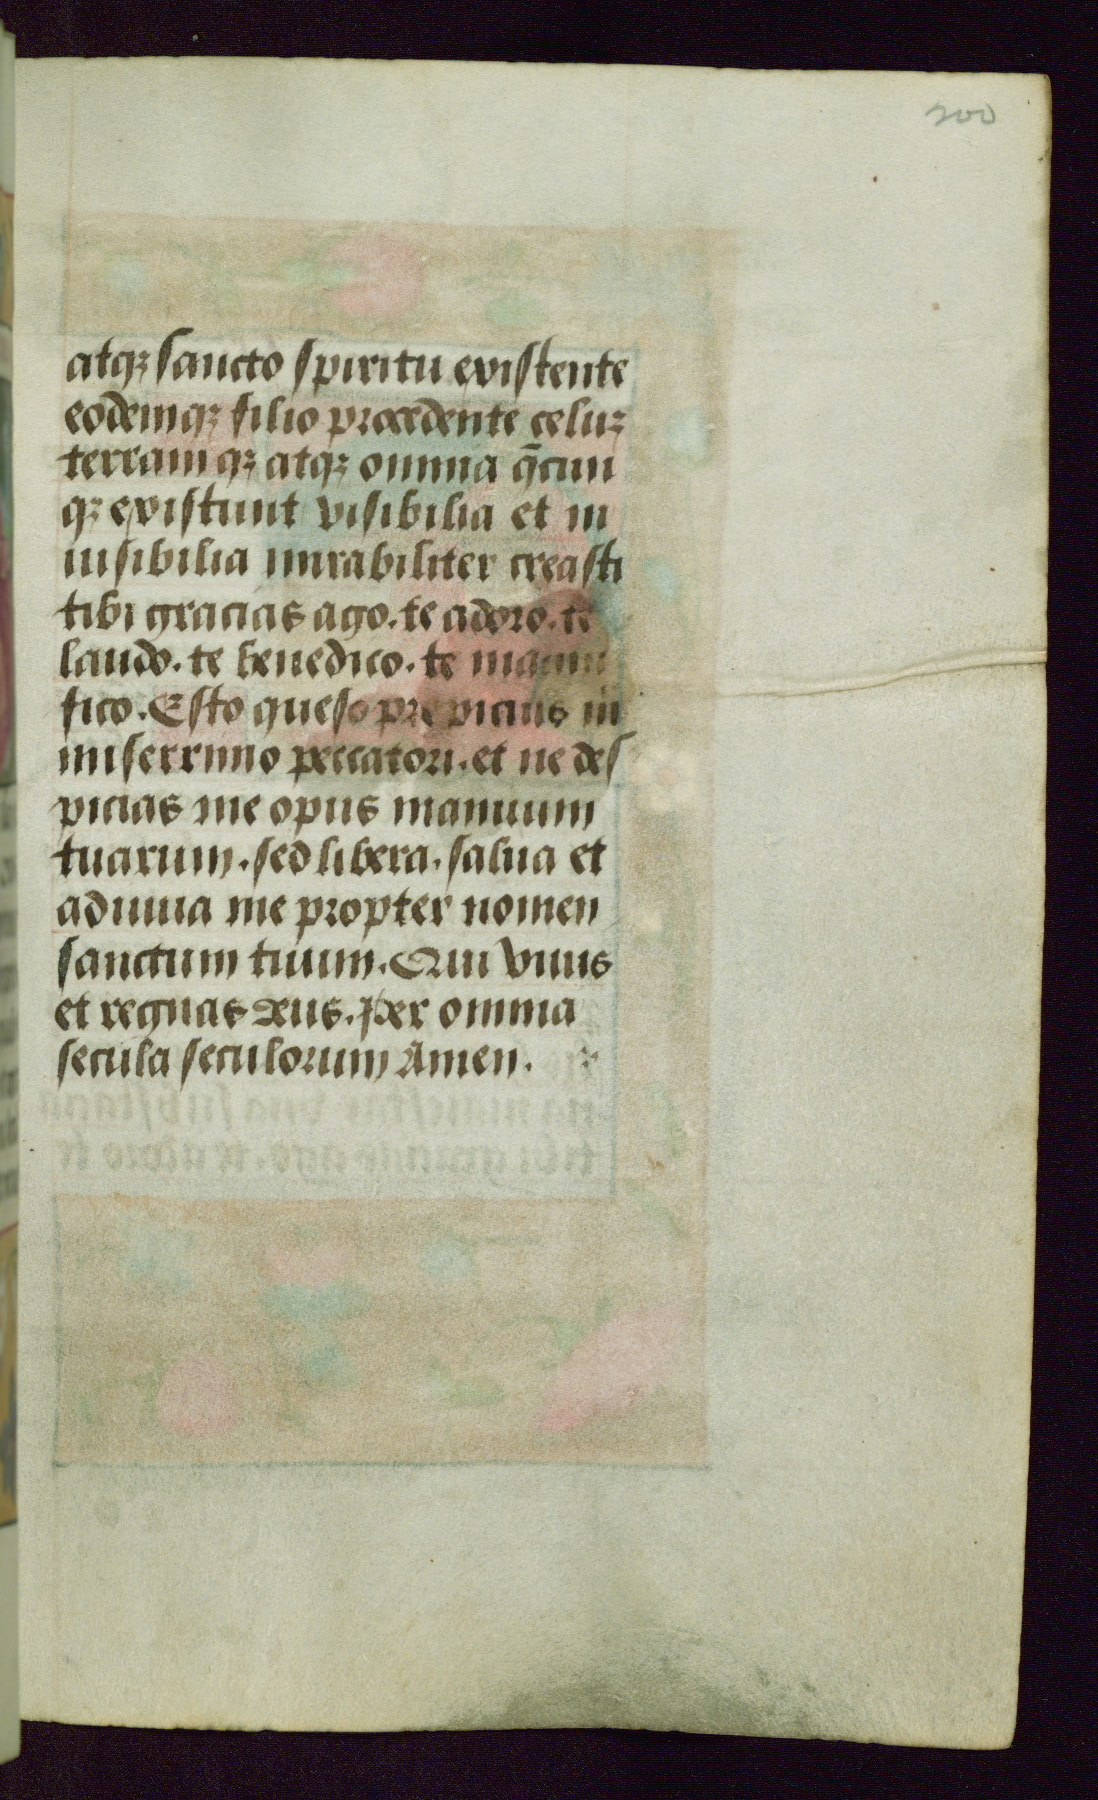 200
atqꝫ sancto spiritu existente
eodemqꝫ filio procedente celuꝫ
terram qꝫ atqꝫ omnia q̄cun
qꝫ existunt visibilia et in
uisibilia mirabiliter creasti
tibi gracias ago. te adoro. te
laudo. te benedico. te magni
fico. Esto queso propicius m̄
miserrimo peccatori. et ne des
picias me opus manuum
tuarum. sed libera. salua et
adiuua me propter nomen
sanctum tuum. Qui viuis
et regnas deus. Per omnia
secula seculorum Amen.